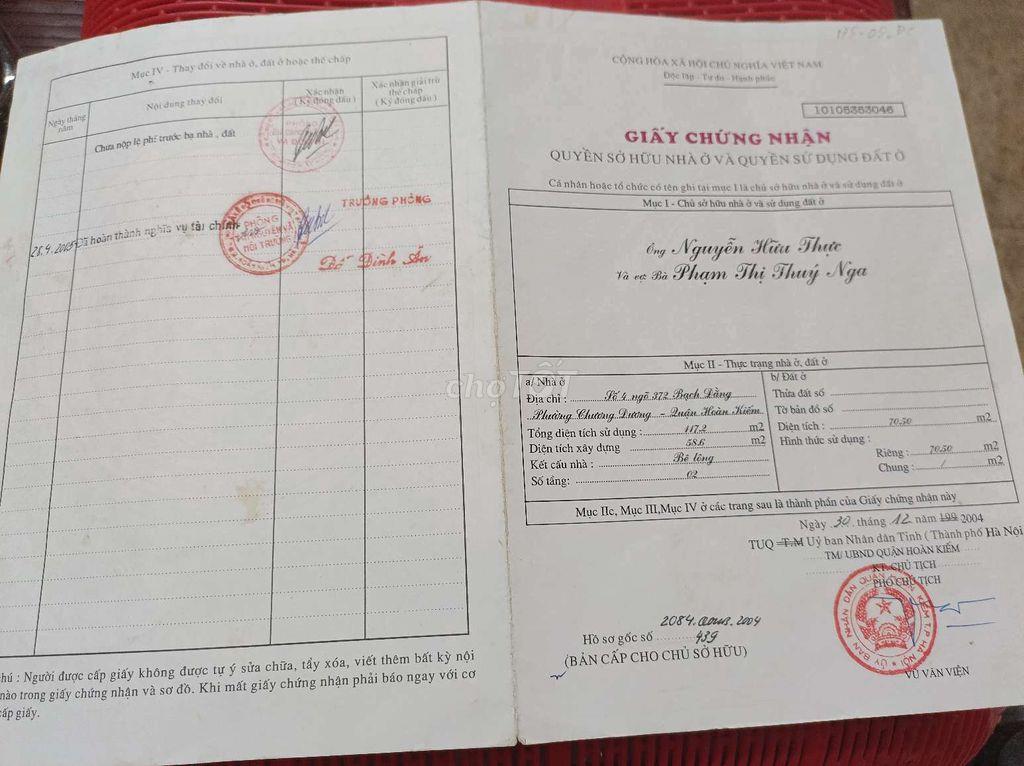 Mục IV - Thay đổi về nhà ở, đất ở hoặc thế chấp
Ngày tháng năm
Nội dung thay đổi
Xác nhận
( Ký đóng dấu )
Xác nhận giải trừ
thế chấp
( Ký đóng dấu )
Chưa nộp lệ phí trước bạ nhà , đất
TRƯỞNG PHÒNG
28.9.2005
Đã hoàn thành nghĩa vụ tài chính
PHÒNG
MÔI TRƯỜNG
Đỗ Đình Ấn
chú : Người được cấp giấy không được tự ý sửa chữa, tẩy xóa, viết thêm bất kỳ nội
nào trong giấy chứng nhận và sơ đồ. Khi mất giấy chứng nhận phải báo ngay với cơ
cấp giấy.
CỘNG HÒA XÃ HỘI CHỦ NGHĨA VIỆT NAM
Độc lập - Tự do - Hạnh phúc
10105353046
GIẤY CHỨNG NHẬN
QUYỀN SỞ HỮU NHÀ Ở VÀ QUYỀN SỬ DỤNG ĐẤT Ở
Cá nhân hoặc tổ chức có tên ghi tại mục I là chủ sở hữu nhà ở và sử dụng đất ở
Mục I - Chủ sở hữu nhà ở và sử dụng đất ở
Ông Nguyễn Hữu Thực
Và vợ: Bà Phạm Thị Thuý Nga
Mục II - Thực trạng nhà ở, đất ở
a/ Nhà ở
Địa chỉ : Số 4 ngõ 372 Bạch Đằng
Phường Chương Dương - Quận Hoàn Kiếm
Tổng diện tích sử dụng : 117.2 m2
Diện tích xây dựng 58.6 m2
Kết cấu nhà : Bê tông
Số tầng: 02
b/ Đất ở
Thửa đất số
Tờ bản đồ số
Diện tích : 70.50 m2
Hình thức sử dụng :
Riêng : 70.50 m2
Chung : / m2
chợTỐT
Mục IIc, Mục III,Mục IV ở các trang sau là thành phần của Giấy chứng nhận này
Ngày 30 tháng 12 năm 199 2004
TUQ T.M Uỷ ban Nhân dân Tỉnh ( Thành phố Hà Nội
TM/ UBND QUẬN HOÀN KIẾM
KT. CHỦ TỊCH
PHÓ CHỦ TỊCH
ỦY BAN NHÂN DÂN QUẬN HOÀN KIẾM T.P HÀ NỘI
2084.QĐUB.2004
Hồ sơ gốc số 439
(BẢN CẤP CHO CHỦ SỞ HỮU)
VŨ VĂN VIỆN